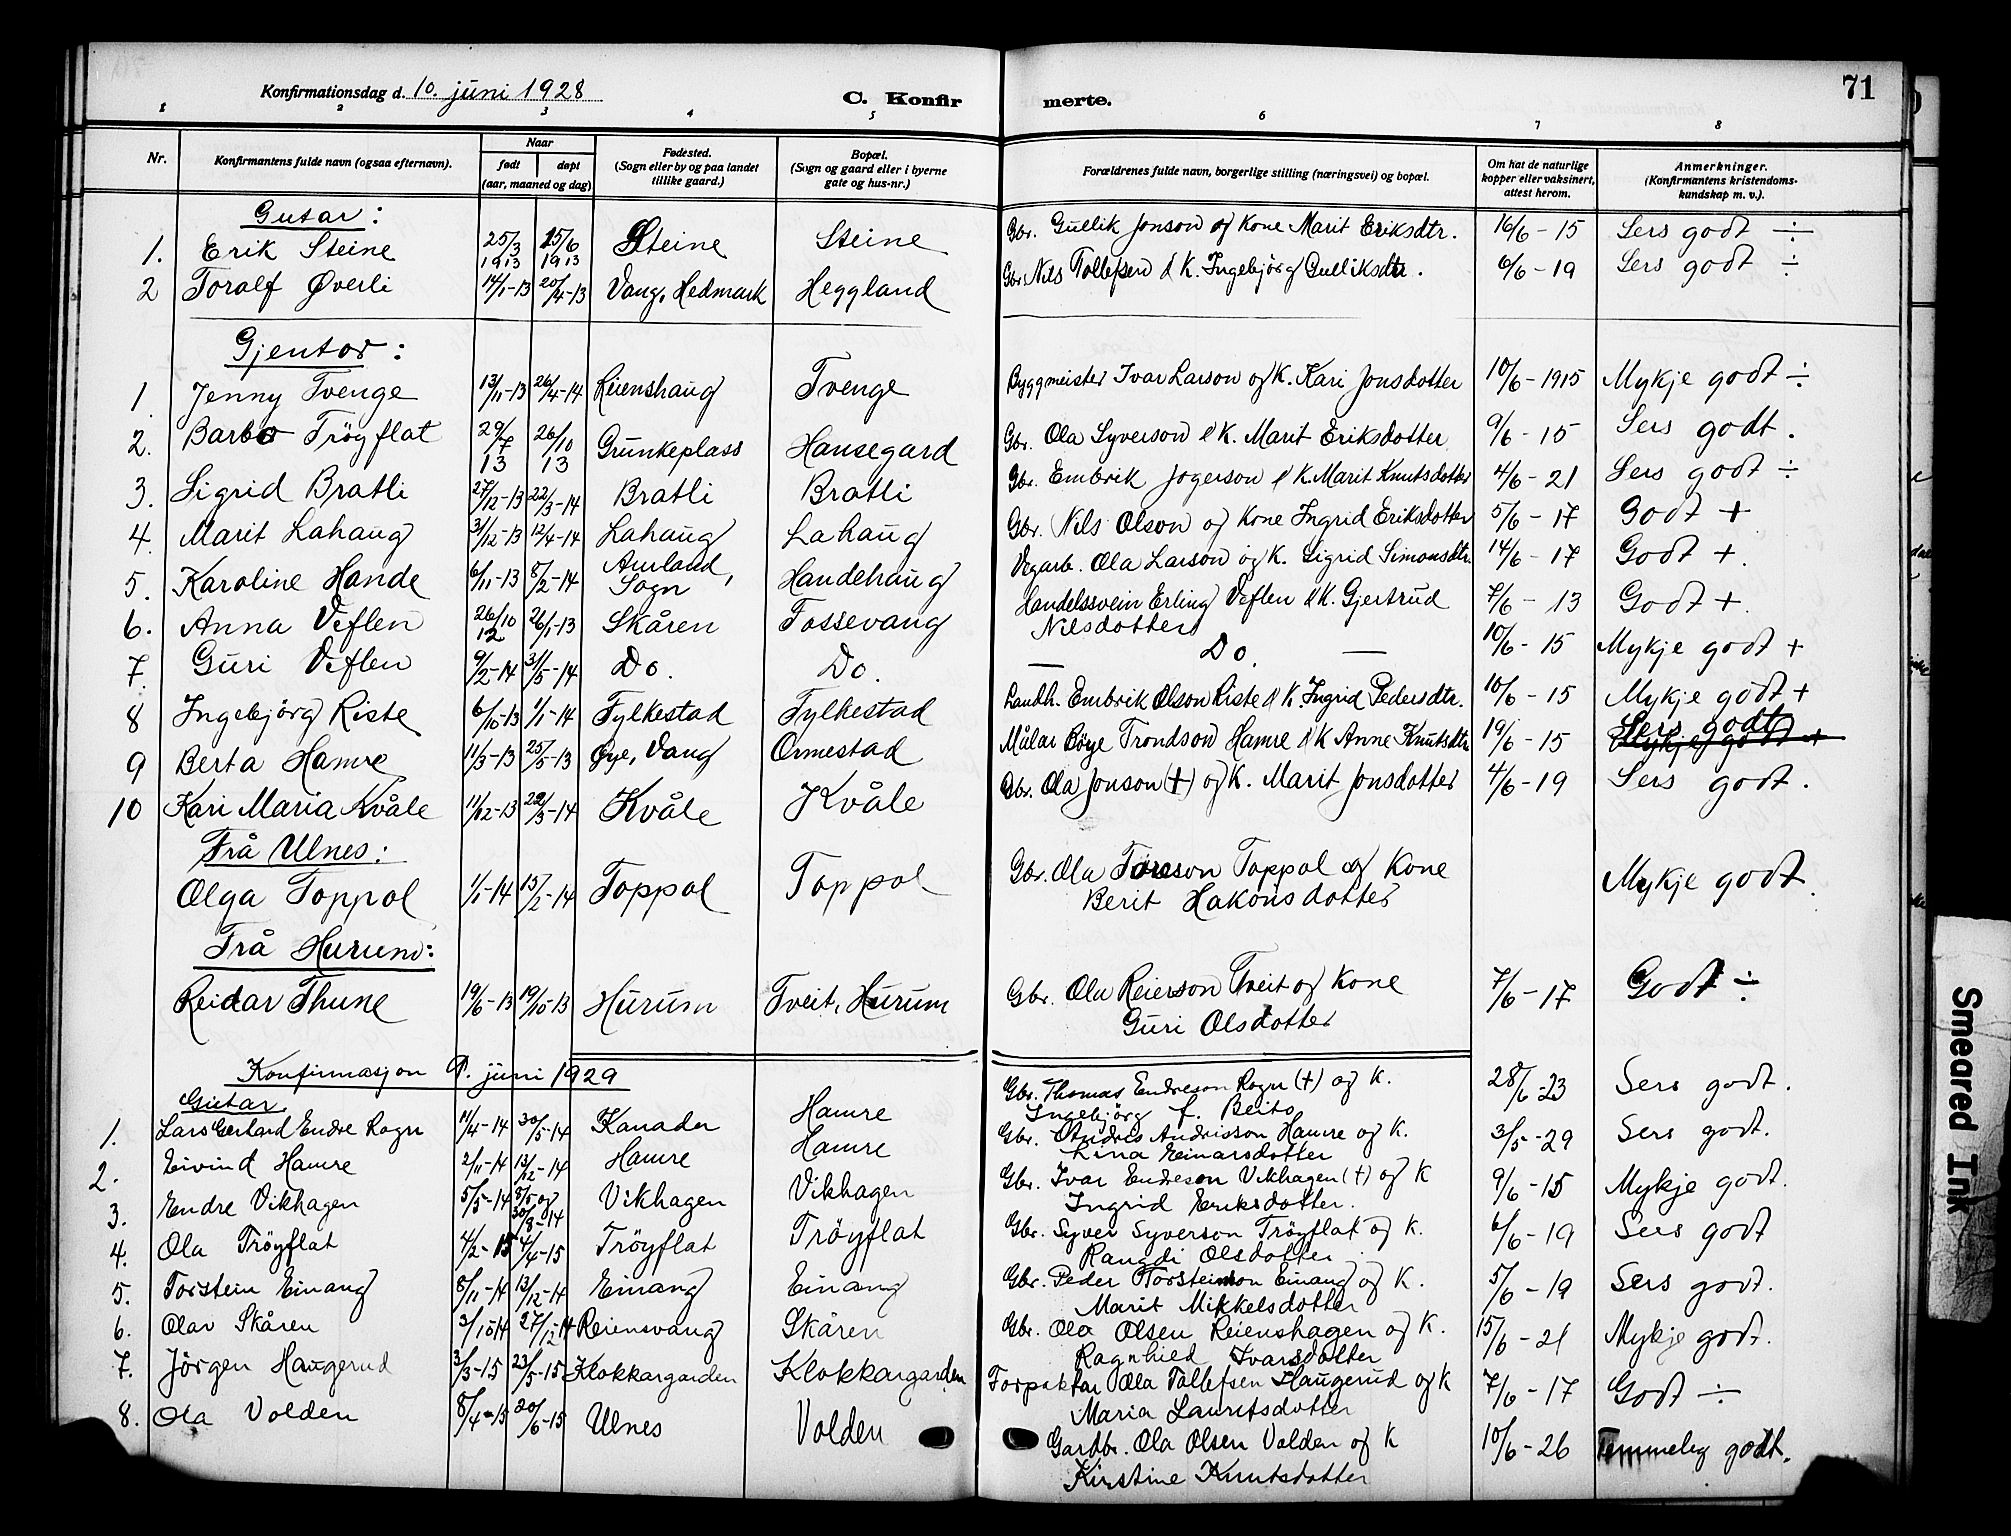 71
Konfirmationsdag d. 10. juni 1928
C. Konfirmerte.
1 2 3 4 5 6 7 8
Nr.
Konfirmantens fulde navn (ogsaa efternavn).
Naar
født døpt
(aar, maaned og dag)
Fødested.
(Sogn eller by og paa landet
tillike gaard.)
Bopæl.
(Sogn og gaard eller i byerne
gate og hus-nr.)
Forældrenes fulde navn, borgerlige stilling (næringsvei) og bopæl.
Om hat de naturlige
kopper eller vaksinert,
attest herom.
Anmerkninger.
(Konfirmantens kristendoms-
kundskap m. v.).
Gutar:
1. Erik Steine 25/3 1913 15/6 1913 Steine Steine Gbr. Gullik Jonson og Kone Marit Eriksdtr. 16/6-15 Sers godt ÷
2 Toralf Øverli 14/1-13 20/4-13 Vang, Hedmark Heggland Gbr. Nils Tollefsen & K. Ingebjörg Gulliksdtr. 6/6-19 Sers godt ÷
Gjentor:
1. Jenny Tvenge 13/11-13 26/4-14 Reienshaug Tvenge Byggmeister Ivar Larson og K. Kari Jonsdotter 10/6-1915 Mykje godt ÷
2. Barbo Tröyflat 29/7 13 26/10 13 Grunkeplass Hausegard Gbr. Ola Syverson & K. Marit Eriksdotter 9/6-15 Sers godt.
3. Sigrid Bratli 27/12-13 22/3-14 Bratli Bratli Gbr. Embrik Jogerson & K. Marit Knutsdotter 4/6-21 Sers godt ÷
4. Marit Lahaug 31/12-13 12/4-14 Lahaug Lahaug Gbr. Nils Olson og Kone Ingrid Eriksdotter 5/6-17 Godt +
5. Karoline Hande 6/11-13 8/2-14 Aurland, Sogn Handehaug Vegarb. Ola Larson og K. Sigrid Simonsdtr. 14/6-17 Godt +.
6. Anna Veflen 26/10 12 26/1-13 Skåren Fossevang Handelssvein Erling Veflen & K. Gjertrud Nilsdotter 7/6-13 Godt +.
7. Guri Veflen 9/2-14 31/5-14 Do. Do. — Do. — 10/6-15 Mykje godt +
8 Ingebjörg Riste 6/10-13 1/1-14 Fylkestad Fylkestad Landh. Embrik Olson Riste & K. Ingrid Pedersdtr. 10/6-15 Mykje godt +
9 Berta Hamre 11/3-13 25/5-13 Øye, Vang Ormestad Målar Böye Trondson Hamre & K Anne Knutsdtr 19/6-15 Sers godt Mykje godt +
10 Kari Maria Kvåle 11/12-13 22/3-14 Kvåle Kvåle Gbr. Ola Jonson (+) og K. Marit Jonsdotter 4/6-19 Sers godt.
Frå Ulnes:
Olga Toppol 1/1-14 15/2-14 Toppol Toppol Gbr. Ola Toreson Toppol og Kone Berit Hakonsdotter Mykje godt.
Frå Hurum:
Reidar Thune 19/6-13 19/10-13 Hurum Tveit, Hurum Gbr. Ola Reierson Tveit og Kone Guri Olsdotter 7/6-17 Godt ÷
Konfirmasjon 9. juni 1929
Gutar
1. Lars Gerhard Endre Rogn 11/4-14 30/5-14 Kanada Hamre Gbr. Thomas Endreson Rogn (+) og K. Ingebjörg f. Beito 28/6-23 Sers godt.
2. Eivind Hamre 2/11-14 13/12-14 Hamre Hamre Gbr. Andris Andrisson Hamre og K. Lina Einarsdotter 3/5-29 Sers godt.
3. Endre Vikhagen 5/5-14 8/5 og 30/8-14 Vikhagen Vikhagen Gbr. Ivar Endreson Vikhagen (+) og K Ingrid Eriksdotter. 9/6-15 Mykje godt.
4. Ola Tröyflat 4/2-15 4/4-15 Tröyflat Tröyflat Gbr. Syver Syverson Tröyflat og K. Rangdi Olsdotter 6/6-19 Sers godt
5. Torstein Einang 8/11-14 13/12-14 Einang Einang Gbr. Peder Torsteinson Einang og K. Marit Mikkelsdotter 5/6-19 Sers godt.
6. Olav Skåren 3/10-14 27/12-14 Reiensvang Skåren Gbr. Ola Olsen Reienshagen og K. Ragnhild Ivarsdotter 15/6-21 Mykje godt.
7. Jörgen Haugerud 3/3-15 23/5-15 Klokkargarden Klokkargarden Forpaktar Ola Tollefsen Haugerud og K Maria Lauritsdotter 7/6-17 Godt ÷
8. Ola Volden 8/4-15 20/6-15 Ulnes Volden Gardbr. Ola Olsen Volden og K Kirstine Knutsdotter 10/6-26 Temmeleg godt.
Smeared Ink